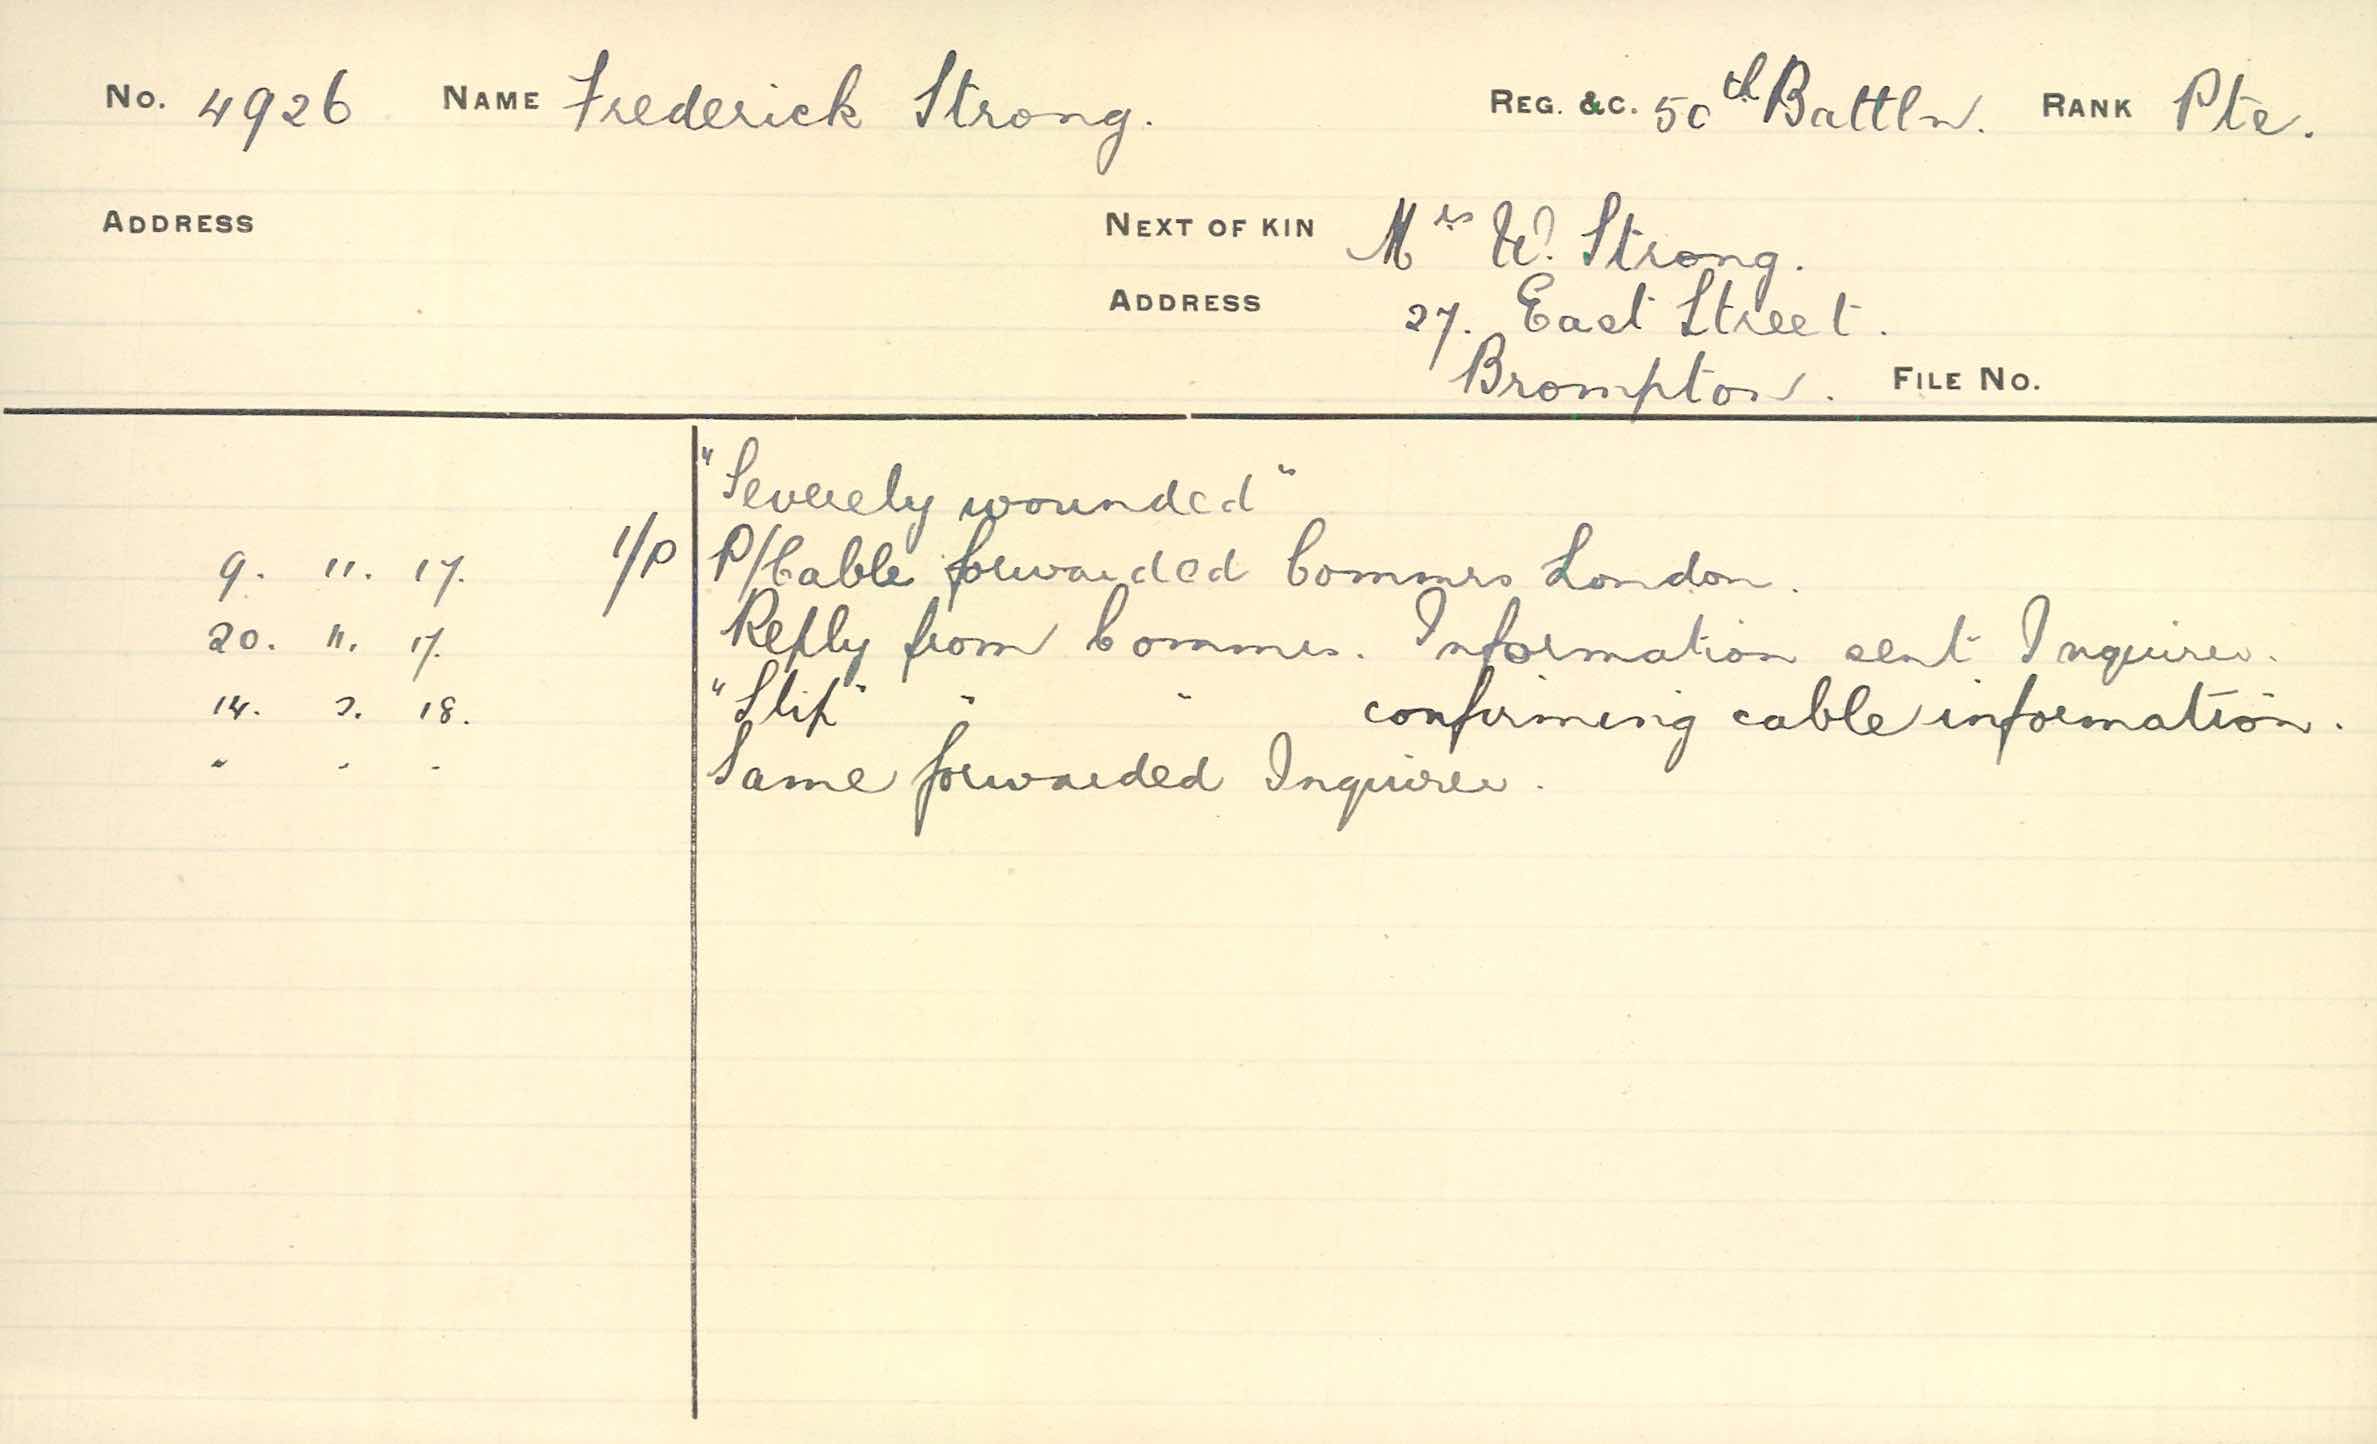 No. 4926 NAME Frederick Strong. REG. &C. 50th Battln. RANK Pte.
ADDRESS NEXT OF KIN Mrs W. Strong.
ADDRESS 27. East Street.
Brompton. FILE No.
"Severely wounded"
9. 11. 17. 1/P P/Cable forwarded Commrs London.
20. 11. 17. Reply from Commrs. Information sent Inquirer.
14. 18. "Slip" " " confirming cable information.
" " " Same forwarded Inquirer.